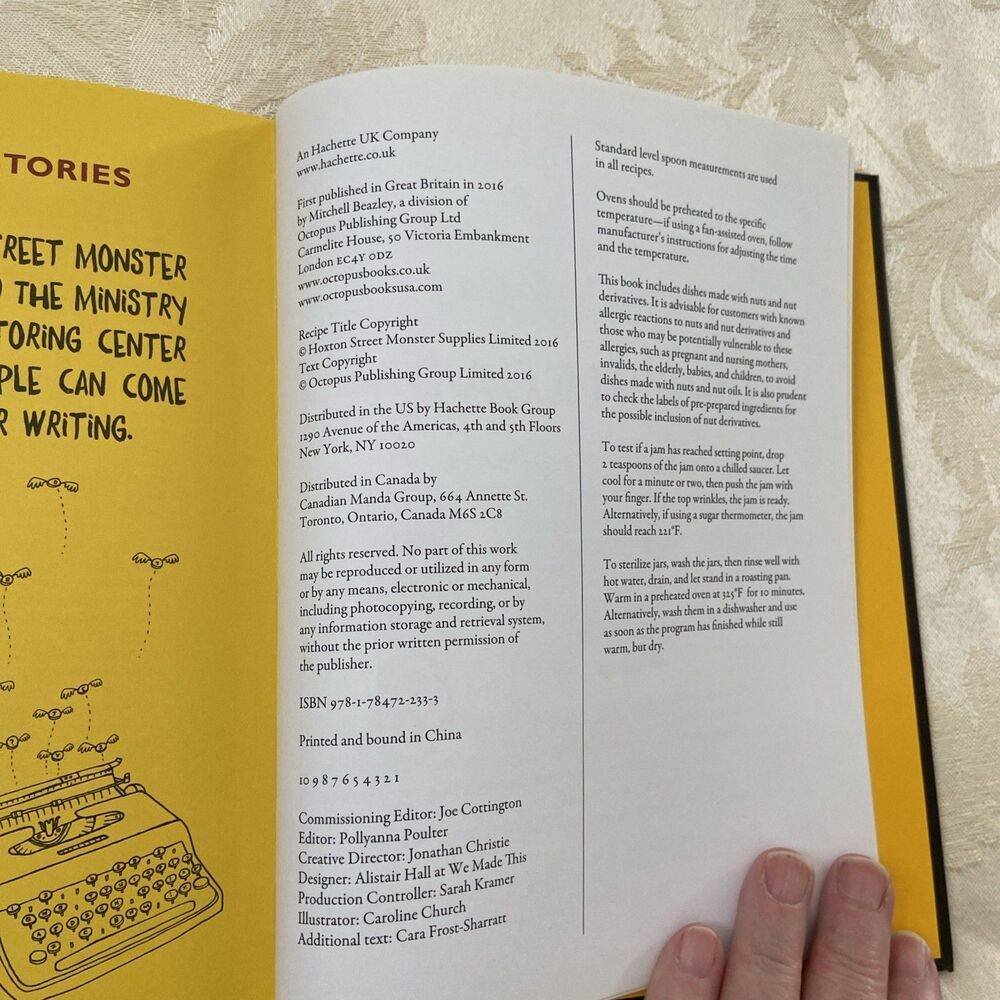 TORIES
REET MONSTER
THE MINISTRY
TORING CENTER
PLE CAN COME
R WRITING.
An Hachette UK Company
www.hachette.co.uk
First published in Great Britain in 2016
by Mitchell Beazley, a division of
Octopus Publishing Group Ltd
Carmelite House, 50 Victoria Embankment
London EC4Y 0DZ
www.octopusbooks.co.uk
www.octopusbooksusa.com
Recipe Title Copyright
© Hoxton Street Monster Supplies Limited 2016
Text Copyright
© Octopus Publishing Group Limited 2016
Distributed in the US by Hachette Book Group
1290 Avenue of the Americas, 4th and 5th Floors
New York, NY 10020
Distributed in Canada by
Canadian Manda Group, 664 Annette St.
Toronto, Ontario, Canada M6S 2C8
All rights reserved. No part of this work
may be reproduced or utilized in any form
or by any means, electronic or mechanical,
including photocopying, recording, or by
any information storage and retrieval system,
without the prior written permission of
the publisher.
ISBN 978-1-78472-233-3
Printed and bound in China
10 9 8 7 6 5 4 3 2 1
Commissioning Editor: Joe Cottington
Editor: Pollyanna Poulter
Creative Director: Jonathan Christie
Designer: Alistair Hall at We Made This
Production Controller: Sarah Kramer
Illustrator: Caroline Church
Additional text: Cara Frost-Sharratt
Standard level spoon measurements are used
in all recipes.
Ovens should be preheated to the specific
temperature—if using a fan-assisted oven, follow
manufacturer's instructions for adjusting the time
and the temperature.
This book includes dishes made with nuts and nut
derivatives. It is advisable for customers with known
allergic reactions to nuts and nut derivatives and
those who may be potentially vulnerable to these
allergies, such as pregnant and nursing mothers,
invalids, the elderly, babies, and children, to avoid
dishes made with nuts and nut oils. It is also prudent
to check the labels of pre-prepared ingredients for
the possible inclusion of nut derivatives.
To test if a jam has reached setting point, drop
2 teaspoons of the jam onto a chilled saucer. Let
cool for a minute or two, then push the jam with
your finger. If the top wrinkles, the jam is ready.
Alternatively, if using a sugar thermometer, the jam
should reach 221°F.
To sterilize jars, wash the jars, then rinse well with
hot water, drain, and let stand in a roasting pan.
Warm in a preheated oven at 325°F for 10 minutes.
Alternatively, wash them in a dishwasher and use
as soon as the program has finished while still
warm, but dry.